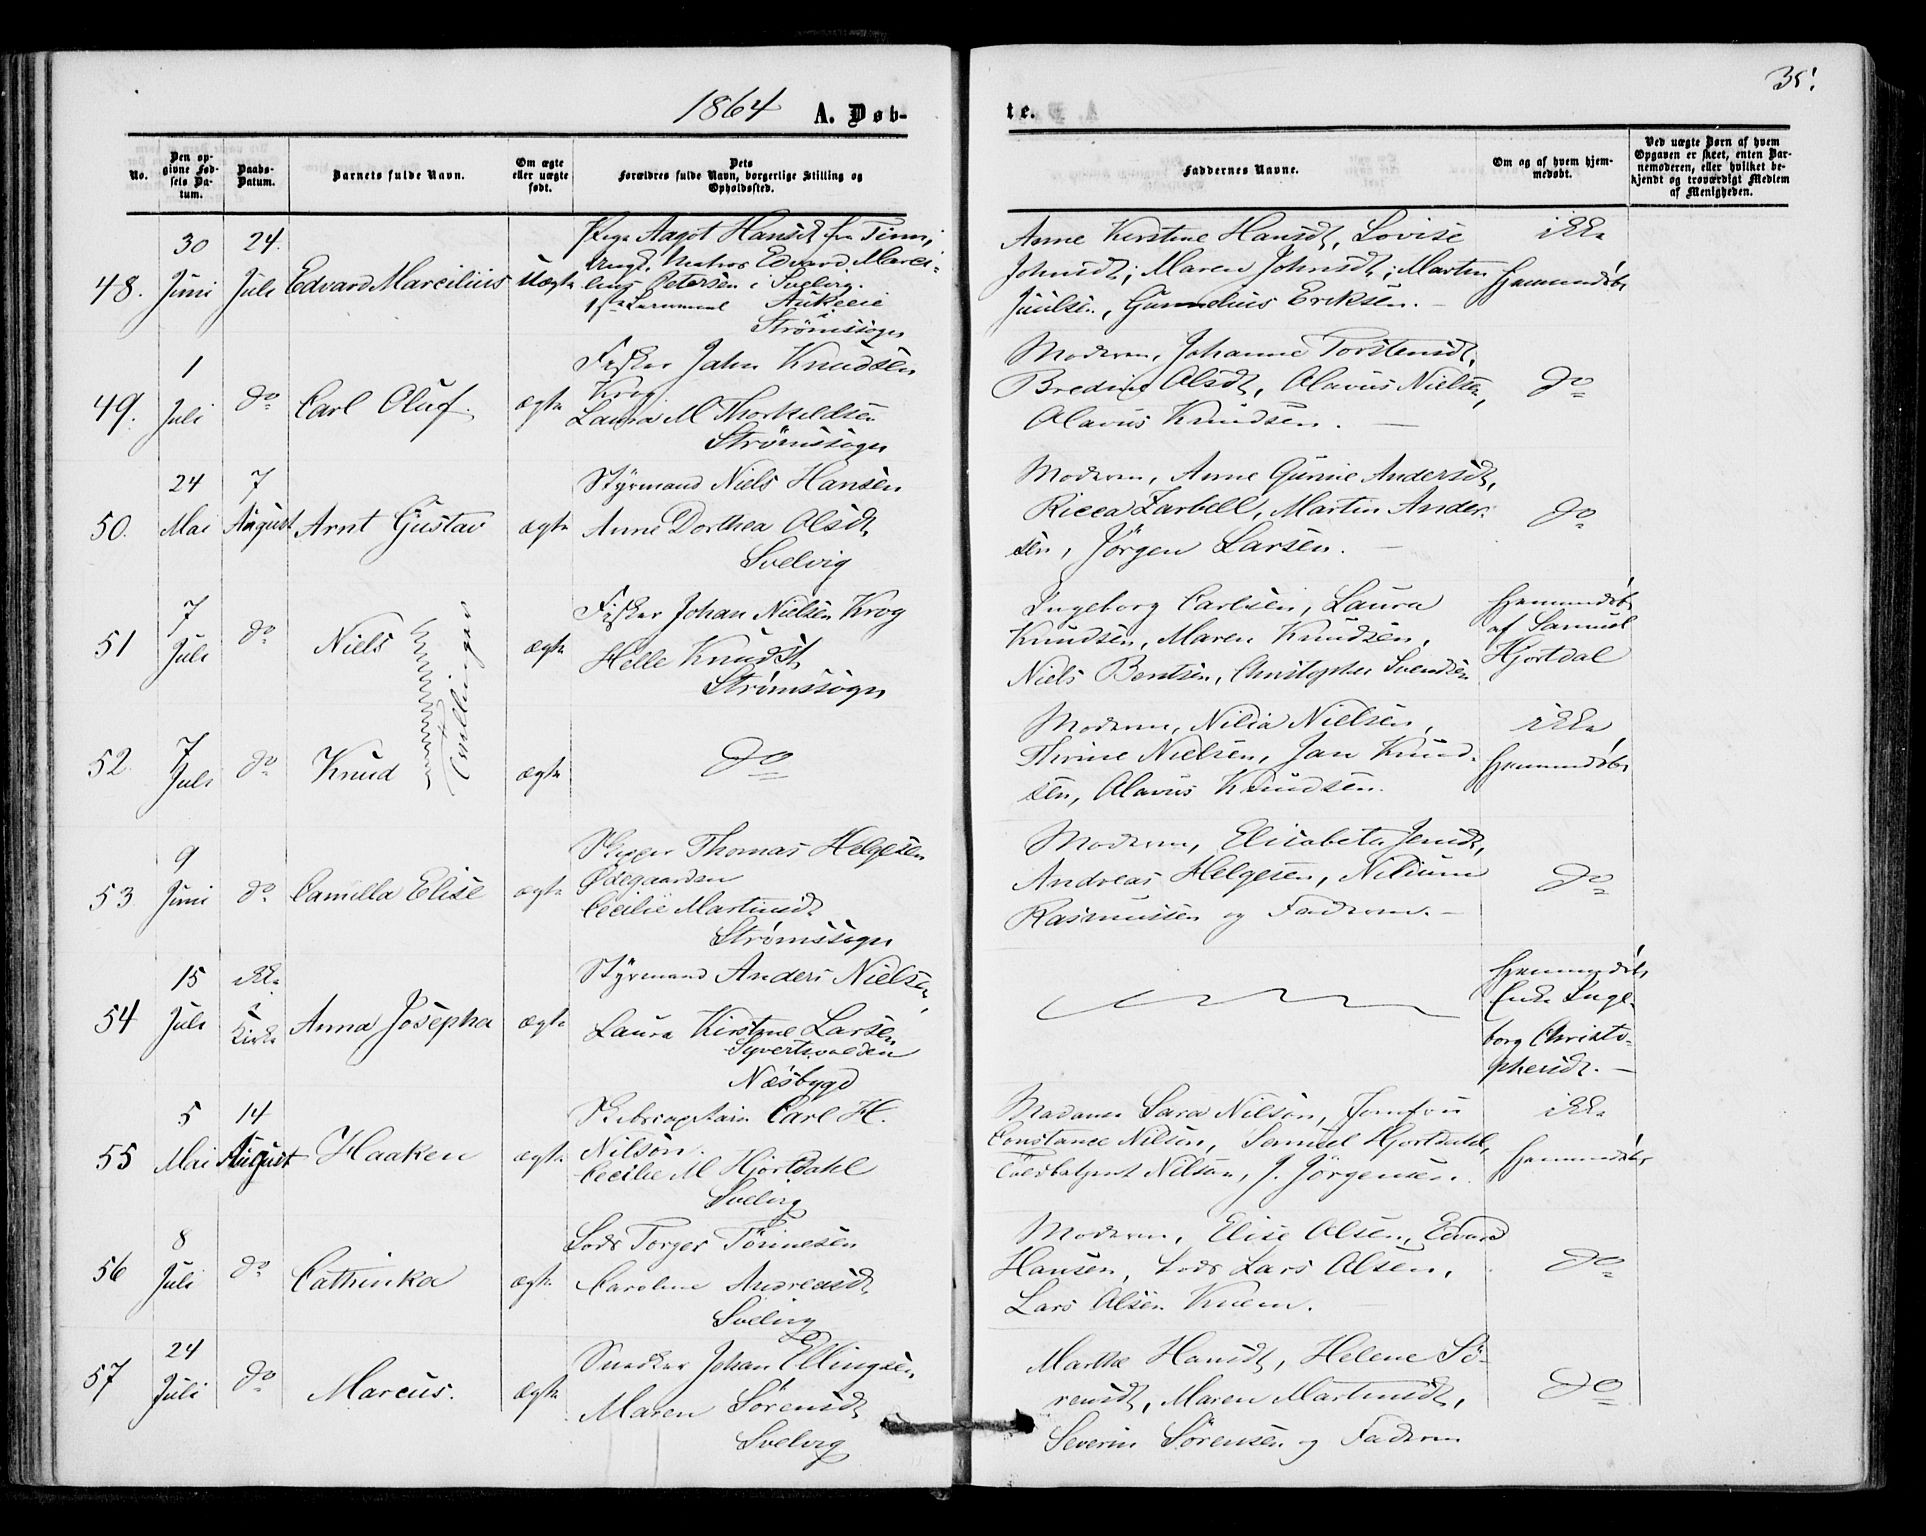 1864 A. Døb-
te.
35.
No.
Den op-
givne Fød-
sels Da-
tum.
Daabs-
Datum.
Barnets fulde Navn.
Om ægte
eller uægte
født.
Dets
Forældres fulde Navn, borgerlige Stilling og
Opholdssted.
Faddernes Navne.
Om og af hvem hjem-
medøbt.
Ved uægte Børn af hvem
Opgaven er skeet, enten Bar-
nemoderen, eller hvilket be-
kjendt og troværdigt Medlem
af Menigheden.
48.
30
Juni
24.
Juli
Edvard Marcilius
Uægte
Pige Aagot Hansdt fra Tinn;
Ungk. Matros Edvard Marci-
lius Petersen i Svelvig.
Strømssogn
Anne Kirstine Hansdt, Lovise
Johnsdt, Maren Johnsdt, Martin
Juulsen, Gunnelius Eriksen.
ikke
hjemmedøbt
49.
1
Juli
do
Carl Oluf.
ægte
Fisker Jahn Knudsen
Krog
Laura M Thorkeldsen
Strømssogn
Moderen, Johanne Torstensdt,
Bredine Olsdt, Olavus Nielsen,
Olavus Knudsen.
do
50.
24
Mai
7
August
Arnt Gustav
ægte
Styrmand Niels Hansen
Anne Dorthea Olsdt
Svelvig
Moderen, Anne Gurine Andersdt,
Ricca Zarbell, Martin Ander-
sen, Jörgen Larsen.
do
51
7
Juli
do
Niels
Tvillinger
ægte
Fisker Johan Nielsen Krog
Helle Knudst
Strømssogn
Ingeborg Carlsen, Laura
Knudsen, Maren Knudsen,
Niels Bentsen, Christopher Svendsen
hjemmedøbt
af Samuel
Hjortdal
52.
7
Juli
do
Knud
ægte
do
Moderen, Nilia Nielsen,
Thrine Nielsen, Jan Knud-
sen, Olavus Knudsen.
ikke
hjemmedøbt
53
9
Juni
do
Camilla Elise
ægte
Skipper Thomas Helgesen
Ødegaarden
Cecilie Martinsdt
Strømssogn
Moderen, Elisabeta Jensdt,
Andreas Helgesen,
Rasmussen og Faderen.
do
54
15
Juli
ikke
i
Kirke
Anna Josepha
ægte
Styrmand Anders Nielsen,
Laura Kirstine Larsen
Syvertsvolden
Næsbygd
hjemmedøbt
Enke Inge-
borg Christo-
phersdt.
55
5
Mai
14
August
Haaken
ægte
Skibscaptain Carl H.
Nilson.
Cecilie M Hjortdahl
Svelvig
Madame Sara Nilson, Jomfru
Constance Nilson, Samuel Hjortdahl,
Nilson, J. Jörgensen.
ikke
hjemmedøbt
56
8
Juli
do
Cathinka
ægte
Lods Torger Tönnesen
Caroline Andreasdt
Svelvig
Moderen, Elise Olsen, Edvard
Hansen, Lods Lars Olsen,
Lars Olsen Knem.
do
57
24
Juli
do
Marcus.
ægte
Snedker Johan Ellingsen,
Maren Sörensdt
Svelvig
Marthe Hansdt, Helene Sö-
rensdt, Maren Martinsdt,
Severin Sörensen og Faderen
do